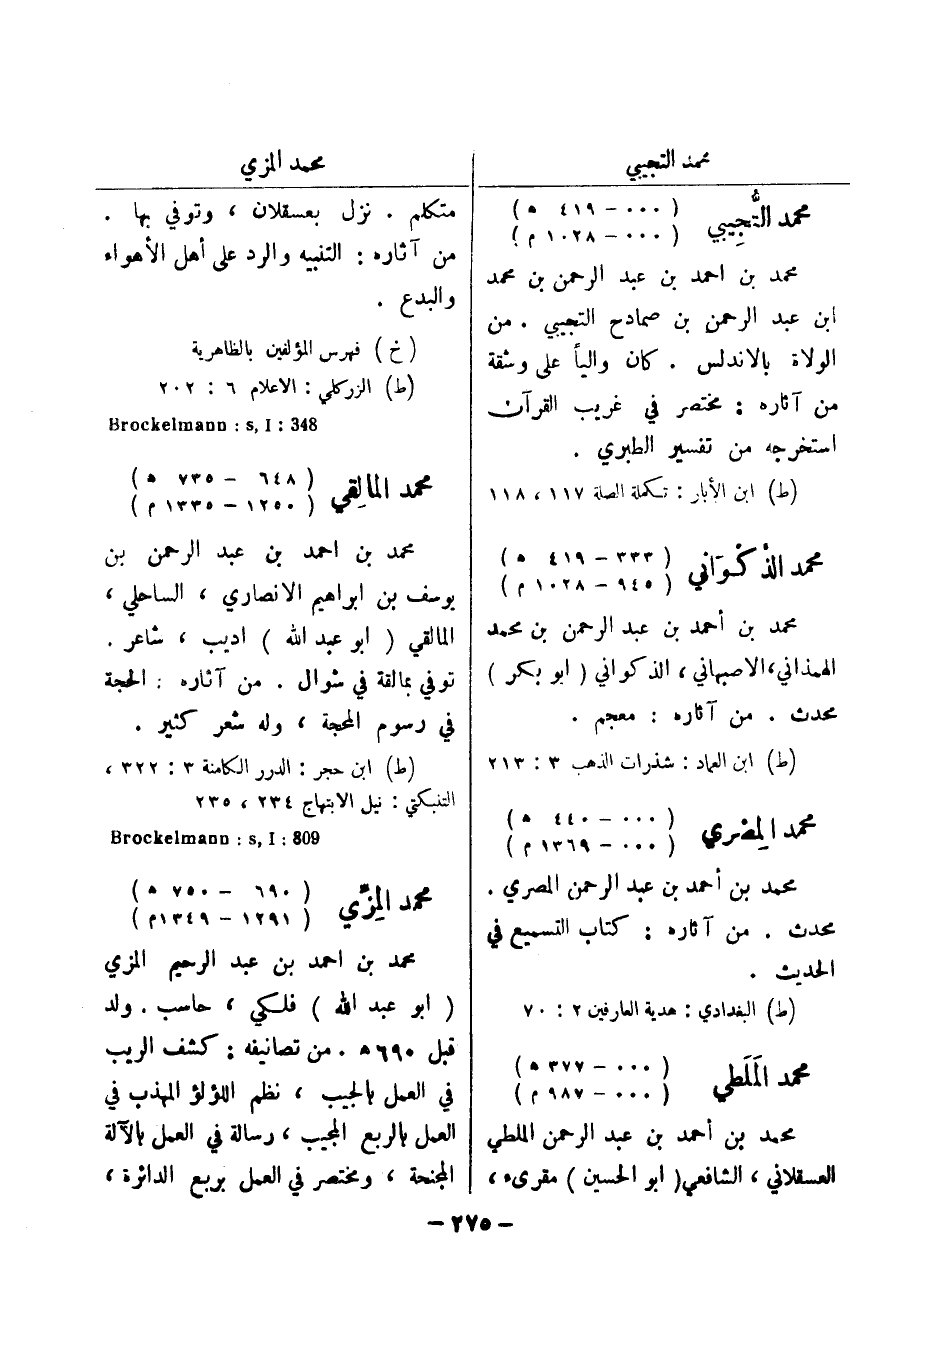 محمد التجيبي
محمد التُّجِيبي
( ٠٠٠ - ٤١٩ ه )
( ٠٠٠ - ١٠٢٨ م )
محمد بن احمد بن عبد الرحمن بن محمد
ابن عبد الرحمن بن صمادح التجيبي . من
الولاة بالاندلس . كان والياً على وشقة
من آثاره : مختصر في غريب القرآن
استخرجه من تفسير الطبري .
(ط) ابن الأبار : تكملة الصلة ١١٧ ، ١١٨
محمد الذْكْوَاني
( ٣٣٣ - ٤١٩ ه )
( ٩٤٥ - ١٠٢٨ م )
محمد بن أحمد بن عبد الرحمن بن محمد
الهمذاني ، الاصبهاني ، الذكواني ( ابو بكر )
محدث . من آثاره : معجم .
(ط) ابن العماد : شذرات الذهب ٣ : ٢١٣
محمد المِصْري
( ٠٠٠ - ٤٤٠ ه )
( ٠٠٠ - ١٣٦٩ م )
محمد بن أحمد بن عبد الرحمن المصري .
محدث . من آثاره : كتاب التسميع في
الحديث .
(ط) البغدادي : هدية العارفين ٢ : ٧٠
محمد المَلَطي
( ٠٠٠ - ٣٧٧ ه )
( ٠٠٠ - ٩٨٧ م )
محمد بن أحمد بن عبد الرحمن الملطي
العسقلاني ، الشافعي ( ابو الحسين ) مقرىء ،
محمد المزي
متكلم . نزل بعسقلان ، وتوفي بها .
من آثاره : التنبيه والرد على أهل الأهواء
والبدع .
(خ) فهرس المؤلفين بالظاهرية
(ط) الزركلي : الاعلام ٦ : ٢٠٢
Brockelmann : s, I : 348
محمد المالِقي
( ٦٤٨ - ٧٣٥ ه )
( ١٢٥٠ - ١٣٣٥ م )
محمد بن احمد بن عبد الرحمن بن
يوسف بن ابراهيم الانصاري ، الساحلي ،
المالقي ( ابو عبد الله ) اديب ، شاعر .
توفي بمالقة في شوال . من آثاره : الحجة
في رسوم المحجة ، وله شعر كثير .
(ط) ابن حجر : الدرر الكامنة ٣ : ٣٢٢ ،
التنبكتي : نيل الابتهاج ٢٣٤ ، ٢٣٥
Brockelmann : s, I : 809
محمد المِزّي
( ٦٩٠ - ٧٥٠ ه )
( ١٢٩١ - ١٣٤٩ م )
محمد بن احمد بن عبد الرحيم المزي
( ابو عبد الله ) فلكي ، حاسب . ولد
قبل ٦٩٠ ه . من تصانيفه : كشف الريب
في العمل بالجيب ، نظم اللؤلؤ المهذب في
العمل بالربع المجيب ، رسالة في العمل بالآلة
المجنحة ، ومختصر في العمل بربع الدائرة ،
- ٢٧٥ -